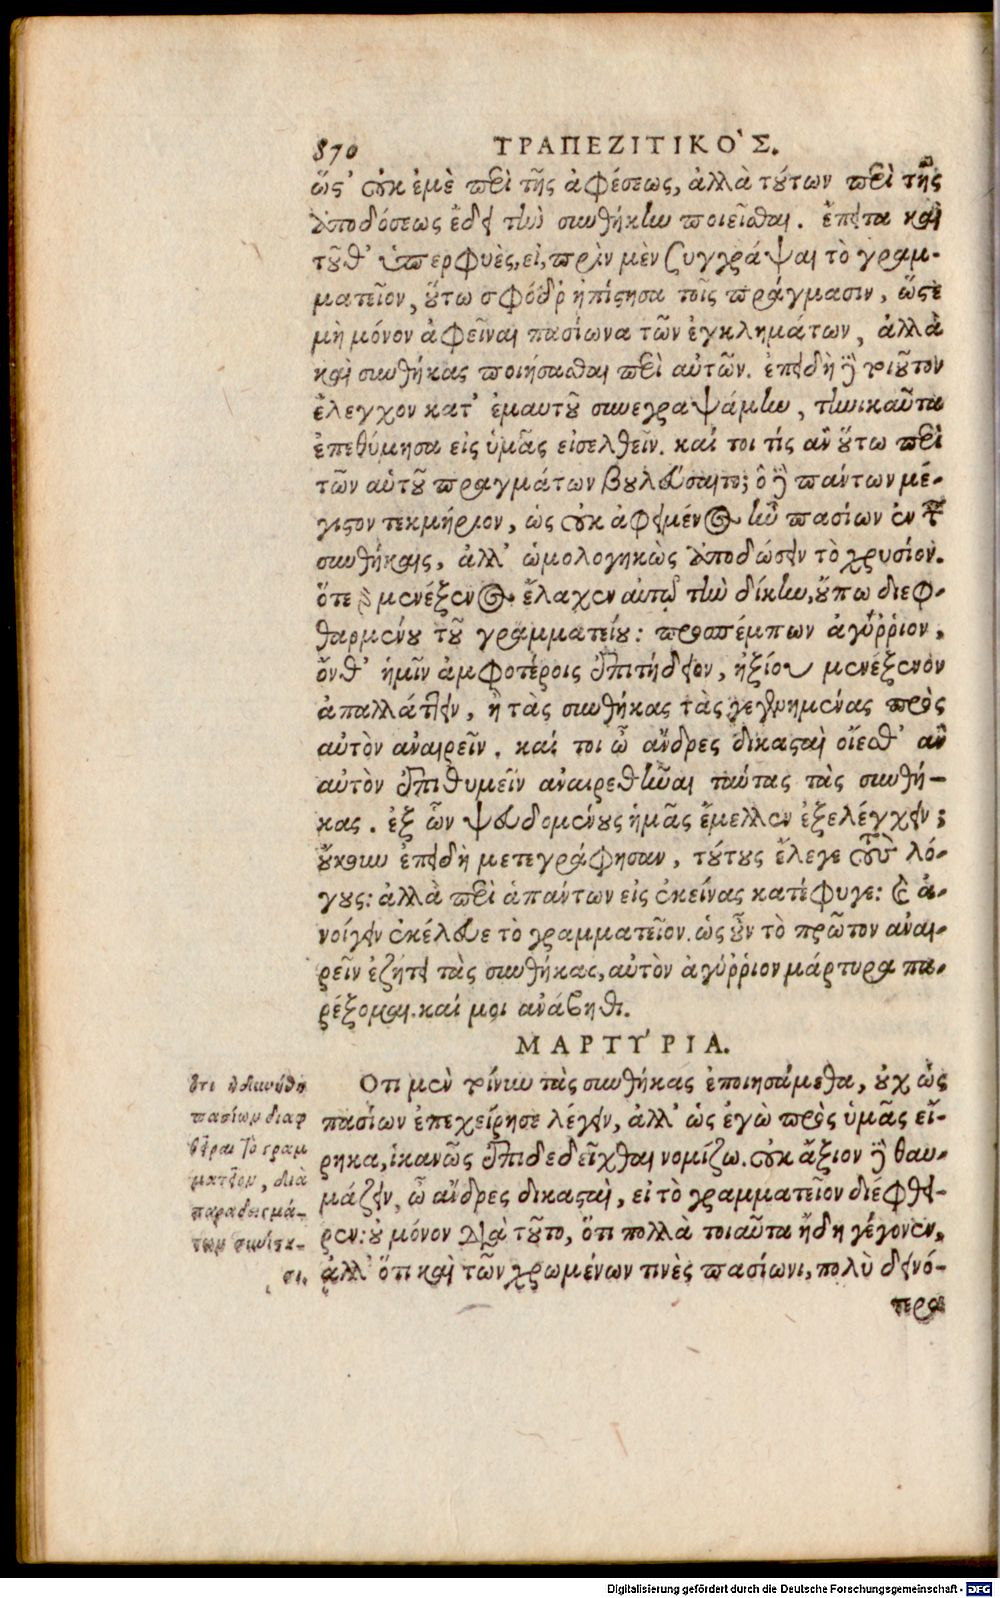 870 ΤΡΑΠΕΖΙΤΙΚΟ`Σ.
ὥς' οὐκ ἐμὲ περὶ τῆς ἀφέσεως, ἀλλὰ τούτων περὶ τῆς
ἀποδόσεως ἔδει τὴν συνθήκην ποιεῖσθαι. ἔπειτα καὶ
τοῦθ' ὑπερφυὲς, εἰ, πρὶν μὲν ξυγγράψαι τὸ γραμ-
ματεῖον, οὕτω σφόδρ' ἠπίςησα τοῖς πράγμασιν, ὥςε
μὴ μόνον ἀφεῖναι πασίωνα τῶν ἐγκλημάτων, ἀλλὰ
καὶ συνθήκας ποιήσασθαι περὶ αὐτῶν. ἐπειδὴ δὲ τοιοῦτον
ἔλεγχον κατ' ἐμαυτοῦ συνεγραψάμην, τηνικαῦτα
ἐπεθύμησα εἰς ὑμᾶς εἰσελθεῖν. καί τοι τίς ἂν οὕτω περὶ
τῶν αὑτοῦ πραγμάτων βουλεύσαιτο; ὃ δὲ πάντων μέ-
γιςον τεκμήριον, ὡς οὐκ ἀφειμένος ἦν πασίων ἐν ταῖς
συνθήκαις, ἀλλ' ὡμολογηκὼς ἀποδώσειν τὸ χρυσίον.
ὅτε γὰρ μενέξενος ἔλαχεν αὐτῷ τὴν δίκην, οὔπω διεφ-
θαρμένου τοῦ γραμματείου: προσπέμπων ἀγύῤῥιον,
ὄνθ' ἡμῖν ἀμφοτέροις ἐπιτήδειον, ἠξίου μενέξενον
ἀπαλλάττειν, ἢ τὰς συνθήκας τὰς γεγενημένας πρὸς
αὐτὸν ἀναιρεῖν. καί τοι ὦ ἄνδρες δικαςαὶ οἴεσθ' ἂν
αὐτὸν ἐπιθυμεῖν ἀναιρεθῆναι ταύτας τὰς συνθή-
κας. ἐξ ὧν ψευδομένους ἡμᾶς ἔμελλεν ἐξελέγχειν;
οὔκουν ἐπειδὴ μετεγράφησαν, τούτους ἔλεγε τοὺς λό-
γους: ἀλλὰ περὶ ἁπάντων εἰς ἐκείνας κατέφυγε: καὶ ἀ-
νοίγειν ἐκέλευε τὸ γραμματεῖον. ὡς οὖν τὸ πρῶτον ἀναι-
ρεῖν ἐζήτει τὰς συνθήκας, αὐτὸν ἀγύῤῥιον μάρτυρα πα-
ρέξομαι. καί μοι ἀνάβηθι.
ΜΑΡΤΥΡΙΑ.
Οτι μὲν τοίνυν τὰς συνθήκας ἐποιησάμεθα, οὐχ ὡς
πασίων ἐπεχείρησε λέγειν, ἀλλ' ὡς ἐγὼ πρὸς ὑμᾶς εἴ-
ρηκα, ἱκανῶς ἐπιδεδεῖχθαι νομίζω. οὐκ ἄξιον δὲ θαυ-
μάζειν, ὦ ἄνδρες δικαςαὶ, εἰ τὸ γραμματεῖον διέφθει-
ρεν: οὐ μόνον διὰ τοῦτο, ὅτι πολλὰ τοιαῦτα ἤδη γέγονεν,
ἀλλ' ὅτι καὶ τῶν χρωμένων τινὲς πασίωνι, πολὺ δεινό-
τερα
ὅτι ἠδυνήθη
πασίων διαφ
θεῖραι τὸ γραμ
ματεῖον, διὰ
παραδειγμά-
των συνίςη-
σι.
Digitalisierung gefördert durch die Deutsche Forschungsgemeinschaft - DFG